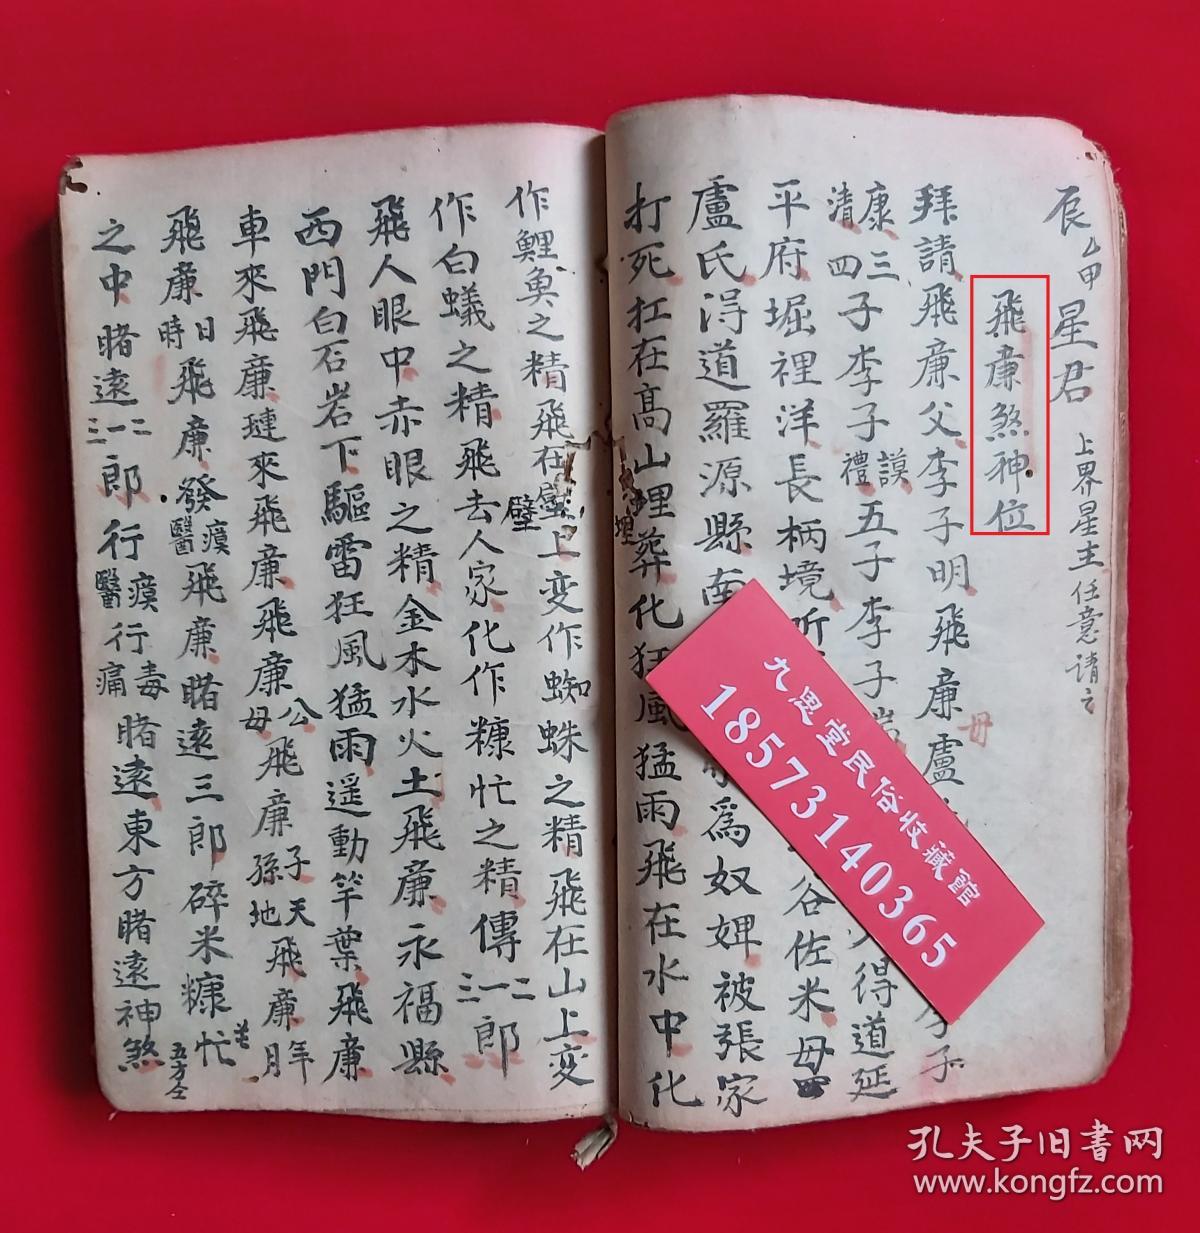 辰乙甲星君 上界星主任意请之
飛廉煞神位
拜請飛廉父李子明飛廉母盧
李子
康三清四子李子謨禮五子李子
得道延
平府堀裡洋長柄境所
谷佐米母
盧氏得道羅源縣南
為奴婢被張家
打死扛在高山埋葬化狂風猛雨飛在水中化
作鯉魚之精飛在壁上变作蜘蛛之精飛在山上变
作白蟻之精飛去人家化作糠忙之精傳一二三郎
飛人眼中赤眼之精金木水火土飛廉永福縣
西門白石岩下驅雷狂風猛雨遥動竿葉飛廉
車來飛廉璉來飛廉飛廉公母飛廉子孫天地飛廉年月
飛廉日時飛廉發瘼醫飛廉睹遠三郎碎米糠忙
之中睹遠一二三郎行瘼醫行毒痛睹遠東方睹遠神煞
五方仝
九思堂民俗收藏館
18573140365
孔夫子旧書网
www.kongfz.com